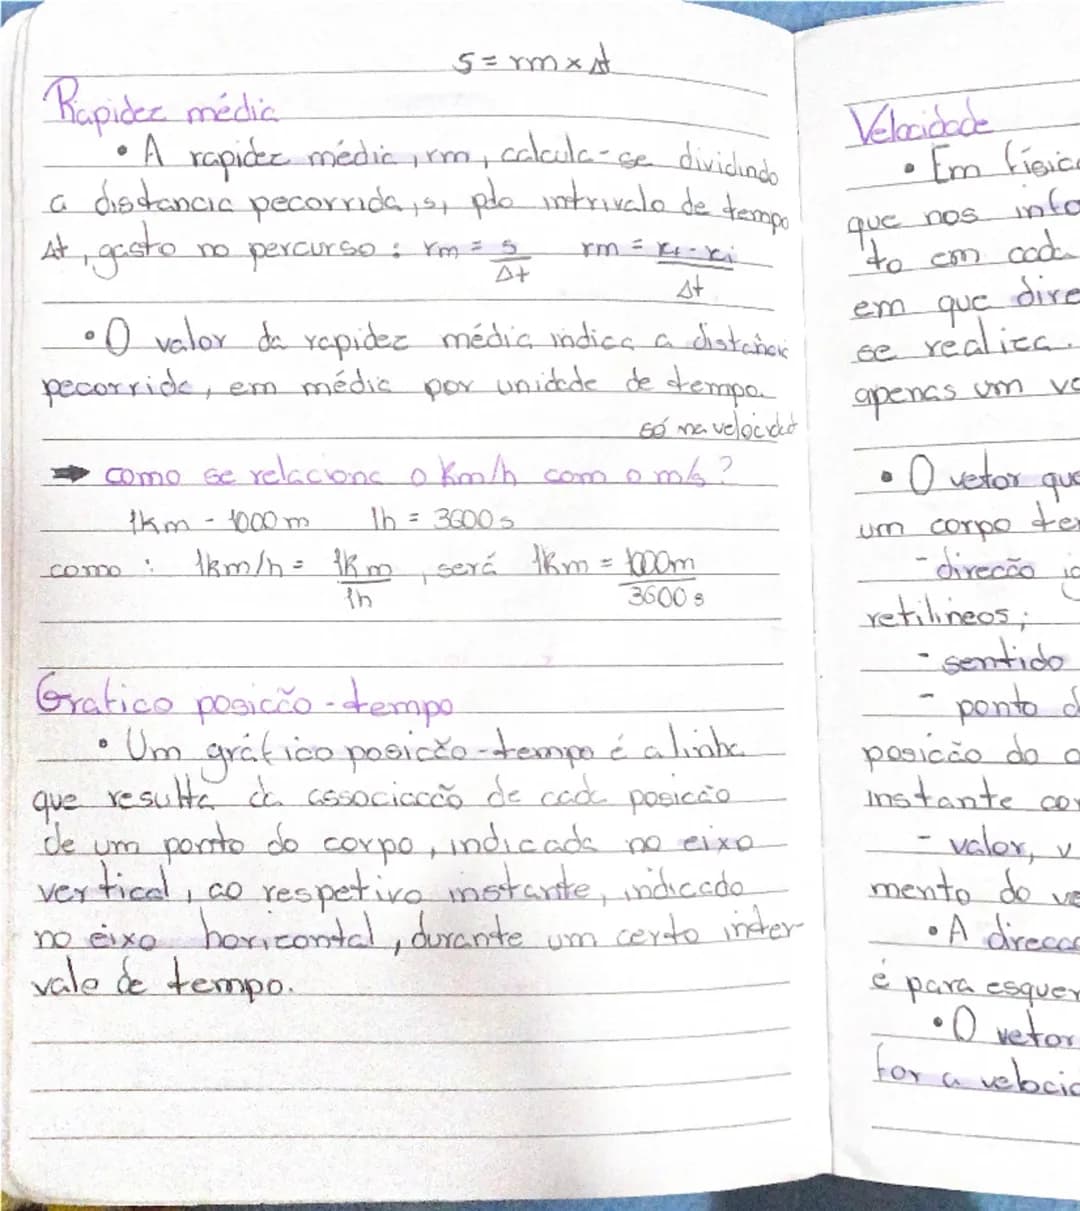 s = rm × Δt
Rapidez média
• A rapidez média, rm, calcula-se dividindo
a distancia pecorrida, s, plo intrivalo de tempo
Δt, gasto no percurso : rm = s/Δt rm = xf - xi/Δt
• O valor da rapidez média indica a distância
pecorrida, em média por unidade de tempo.
só na velocidad
➡ como se relaciona o Km/h com o m/s?
1Km - 1000 m 1h = 3600 s
como : 1km/h = 1Km/1h , será 1Km = 1000m/3600 s
Grafico posicão - tempo
• Um gráfico posicão-tempo é a linha
que resulta da associacão de cada posicão
de um ponto do corpo, indicada no eixo
vertical, ao respetivo instante, indicado
no eixo horizontal, durante um certo inter-
valo de tempo.
Velocidade
• Em física
que nos info
to em cada
em que dire
se realiza.
apenas um va
• O vetor que
um corpo tem
- direcão ig
retilineos;
- sentido
- ponto d
posicão do c
instante cor
- valor, v
mento do ve
• A direcca
é para esquer
• O vetor
for a velocid